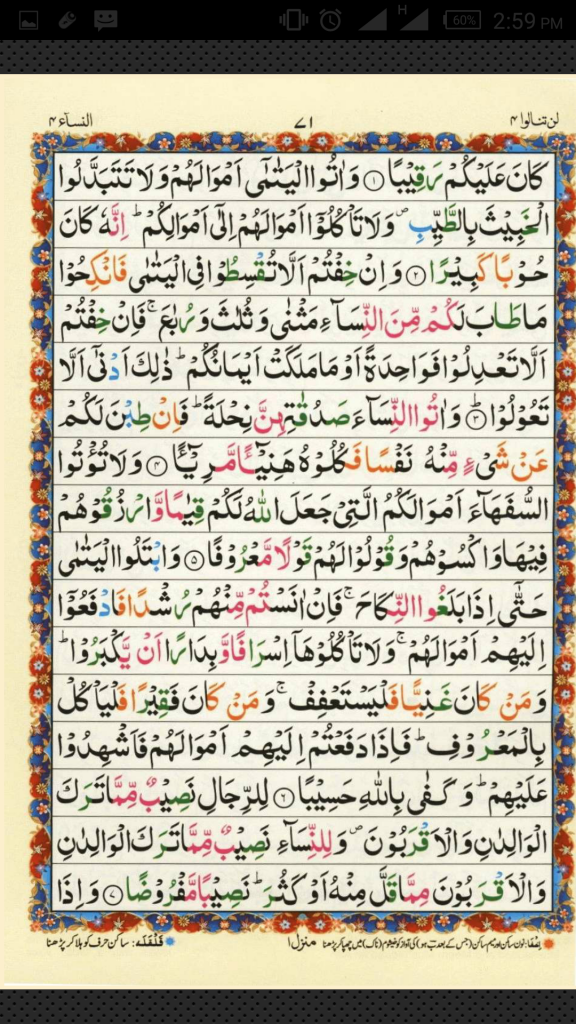 H 60% 2:59 PM
لن تنالوا ۴ ۷۱ النسآء ۴
كَانَ عَلَيْكُمْ رَقِيْبًا ۝۱ وَاٰتُوا الْيَتٰمٰٓى اَمْوَالَهُمْ وَلَا تَتَبَدَّلُوا
الْخَبِيْثَ بِالطَّيِّبِ ۪ وَلَا تَاْكُلُوْٓا اَمْوَالَهُمْ اِلٰٓى اَمْوَالِكُمْ ؕ اِنَّهٗ كَانَ
حُوْبًا كَبِيْرًا ۝۲ وَاِنْ خِفْتُمْ اَلَّا تُقْسِطُوْا فِى الْيَتٰمٰى فَانْكِحُوْا
مَا طَابَ لَكُمْ مِّنَ النِّسَآءِ مَثْنٰى وَثُلٰثَ وَرُبٰعَ ۚ فَاِنْ خِفْتُمْ
اَلَّا تَعْدِلُوْا فَوَاحِدَةً اَوْ مَا مَلَكَتْ اَيْمَانُكُمْ ؕ ذٰلِكَ اَدْنٰٓى اَلَّا
تَعُوْلُوْا ؕ ۝۳ وَاٰتُوا النِّسَآءَ صَدُقٰتِهِنَّ نِحْلَةً ؕ فَاِنْ طِبْنَ لَكُمْ
عَنْ شَىْءٍ مِّنْهُ نَفْسًا فَكُلُوْهُ هَنِيْٓـًٔا مَّرِيْٓـًٔا ۝۴ وَلَا تُؤْتُوا
السُّفَهَآءَ اَمْوَالَكُمُ الَّتِىْ جَعَلَ اللّٰهُ لَكُمْ قِيٰمًا وَّارْزُقُوْهُمْ
فِيْهَا وَاكْسُوْهُمْ وَقُوْلُوْا لَهُمْ قَوْلًا مَّعْرُوْفًا ۝۵ وَابْتَلُوا الْيَتٰمٰى
حَتّٰٓى اِذَا بَلَغُوا النِّكَاحَ ۚ فَاِنْ اٰنَسْتُمْ مِّنْهُمْ رُشْدًا فَادْفَعُوْٓا
اِلَيْهِمْ اَمْوَالَهُمْ ۚ وَلَا تَاْكُلُوْهَآ اِسْرَافًا وَّبِدَارًا اَنْ يَّكْبَرُوْا ؕ
وَمَنْ كَانَ غَنِيًّا فَلْيَسْتَعْفِفْ ۚ وَمَنْ كَانَ فَقِيْرًا فَلْيَاْكُلْ
بِالْمَعْرُوْفِ ؕ فَاِذَا دَفَعْتُمْ اِلَيْهِمْ اَمْوَالَهُمْ فَاَشْهِدُوْا
عَلَيْهِمْ ؕ وَكَفٰى بِاللّٰهِ حَسِيْبًا ۝۶ لِلرِّجَالِ نَصِيْبٌ مِّمَّا تَرَكَ
الْوَالِدٰنِ وَالْاَقْرَبُوْنَ ۪ وَلِلنِّسَآءِ نَصِيْبٌ مِّمَّا تَرَكَ الْوَالِدٰنِ
وَالْاَقْرَبُوْنَ مِمَّا قَلَّ مِنْهُ اَوْ كَثُرَ ؕ نَصِيْبًا مَّفْرُوْضًا ۝۷ وَاِذَا
اخفا: نون ساکن اور میم ساکن (جس کے بعد ب ہو) کی آواز کو خیشوم (ناک) میں چھپا کر پڑھنا منزل ۱ قلقلہ: ساکن حرف کو ہلا کر پڑھنا